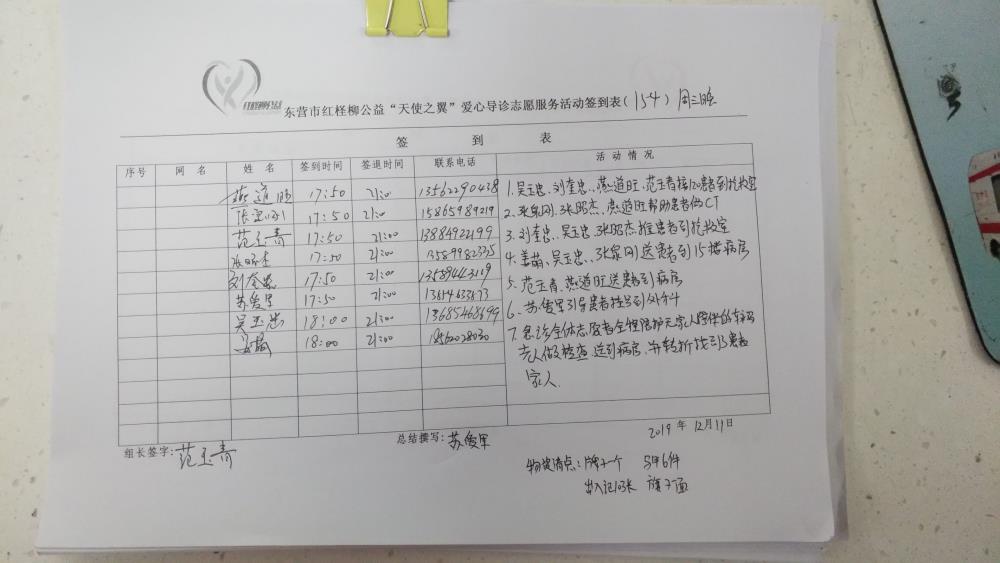 东营市红柽柳公益“天使之翼”爱心导诊志愿服务活动签到表(154) 周三晚
签 到 表
序号 网 名 姓 名 签到时间 签退时间 联系电话 活 动 情 况
燕道旺 17:50 21:00 13562290438
17:50 21:00 15865989219
范玉青 17:50 21:00 13884922199
张昭杰 17:50 21:00 13589982335
刘奎忠 17:50 21:00
苏俊军 17:50 21:00
吴玉忠 18:00 21:00 13685468699
姜萌 18:00 21:00
1. 吴玉忠、刘奎忠、燕道旺、范玉青接120患者到抢救室
2. 张昭杰、燕道旺帮助患者做CT
3. 刘奎忠、吴玉忠、张昭杰推患者到抢救室
4. 姜萌、吴玉忠、送患者到15楼病房
5. 范玉青、燕道旺送患者到病房
6. 苏俊军引导患者挂号到外科
7. 急诊全体志愿者全程陪护无家人陪伴的
老人做检查、送到病房、并转折找到患者
家人.
组长签字: 范玉青
总结撰写: 苏俊军
2019 年 12月11日
物资清点: 牌子一个 马甲6件
出入记10张 旗子一面